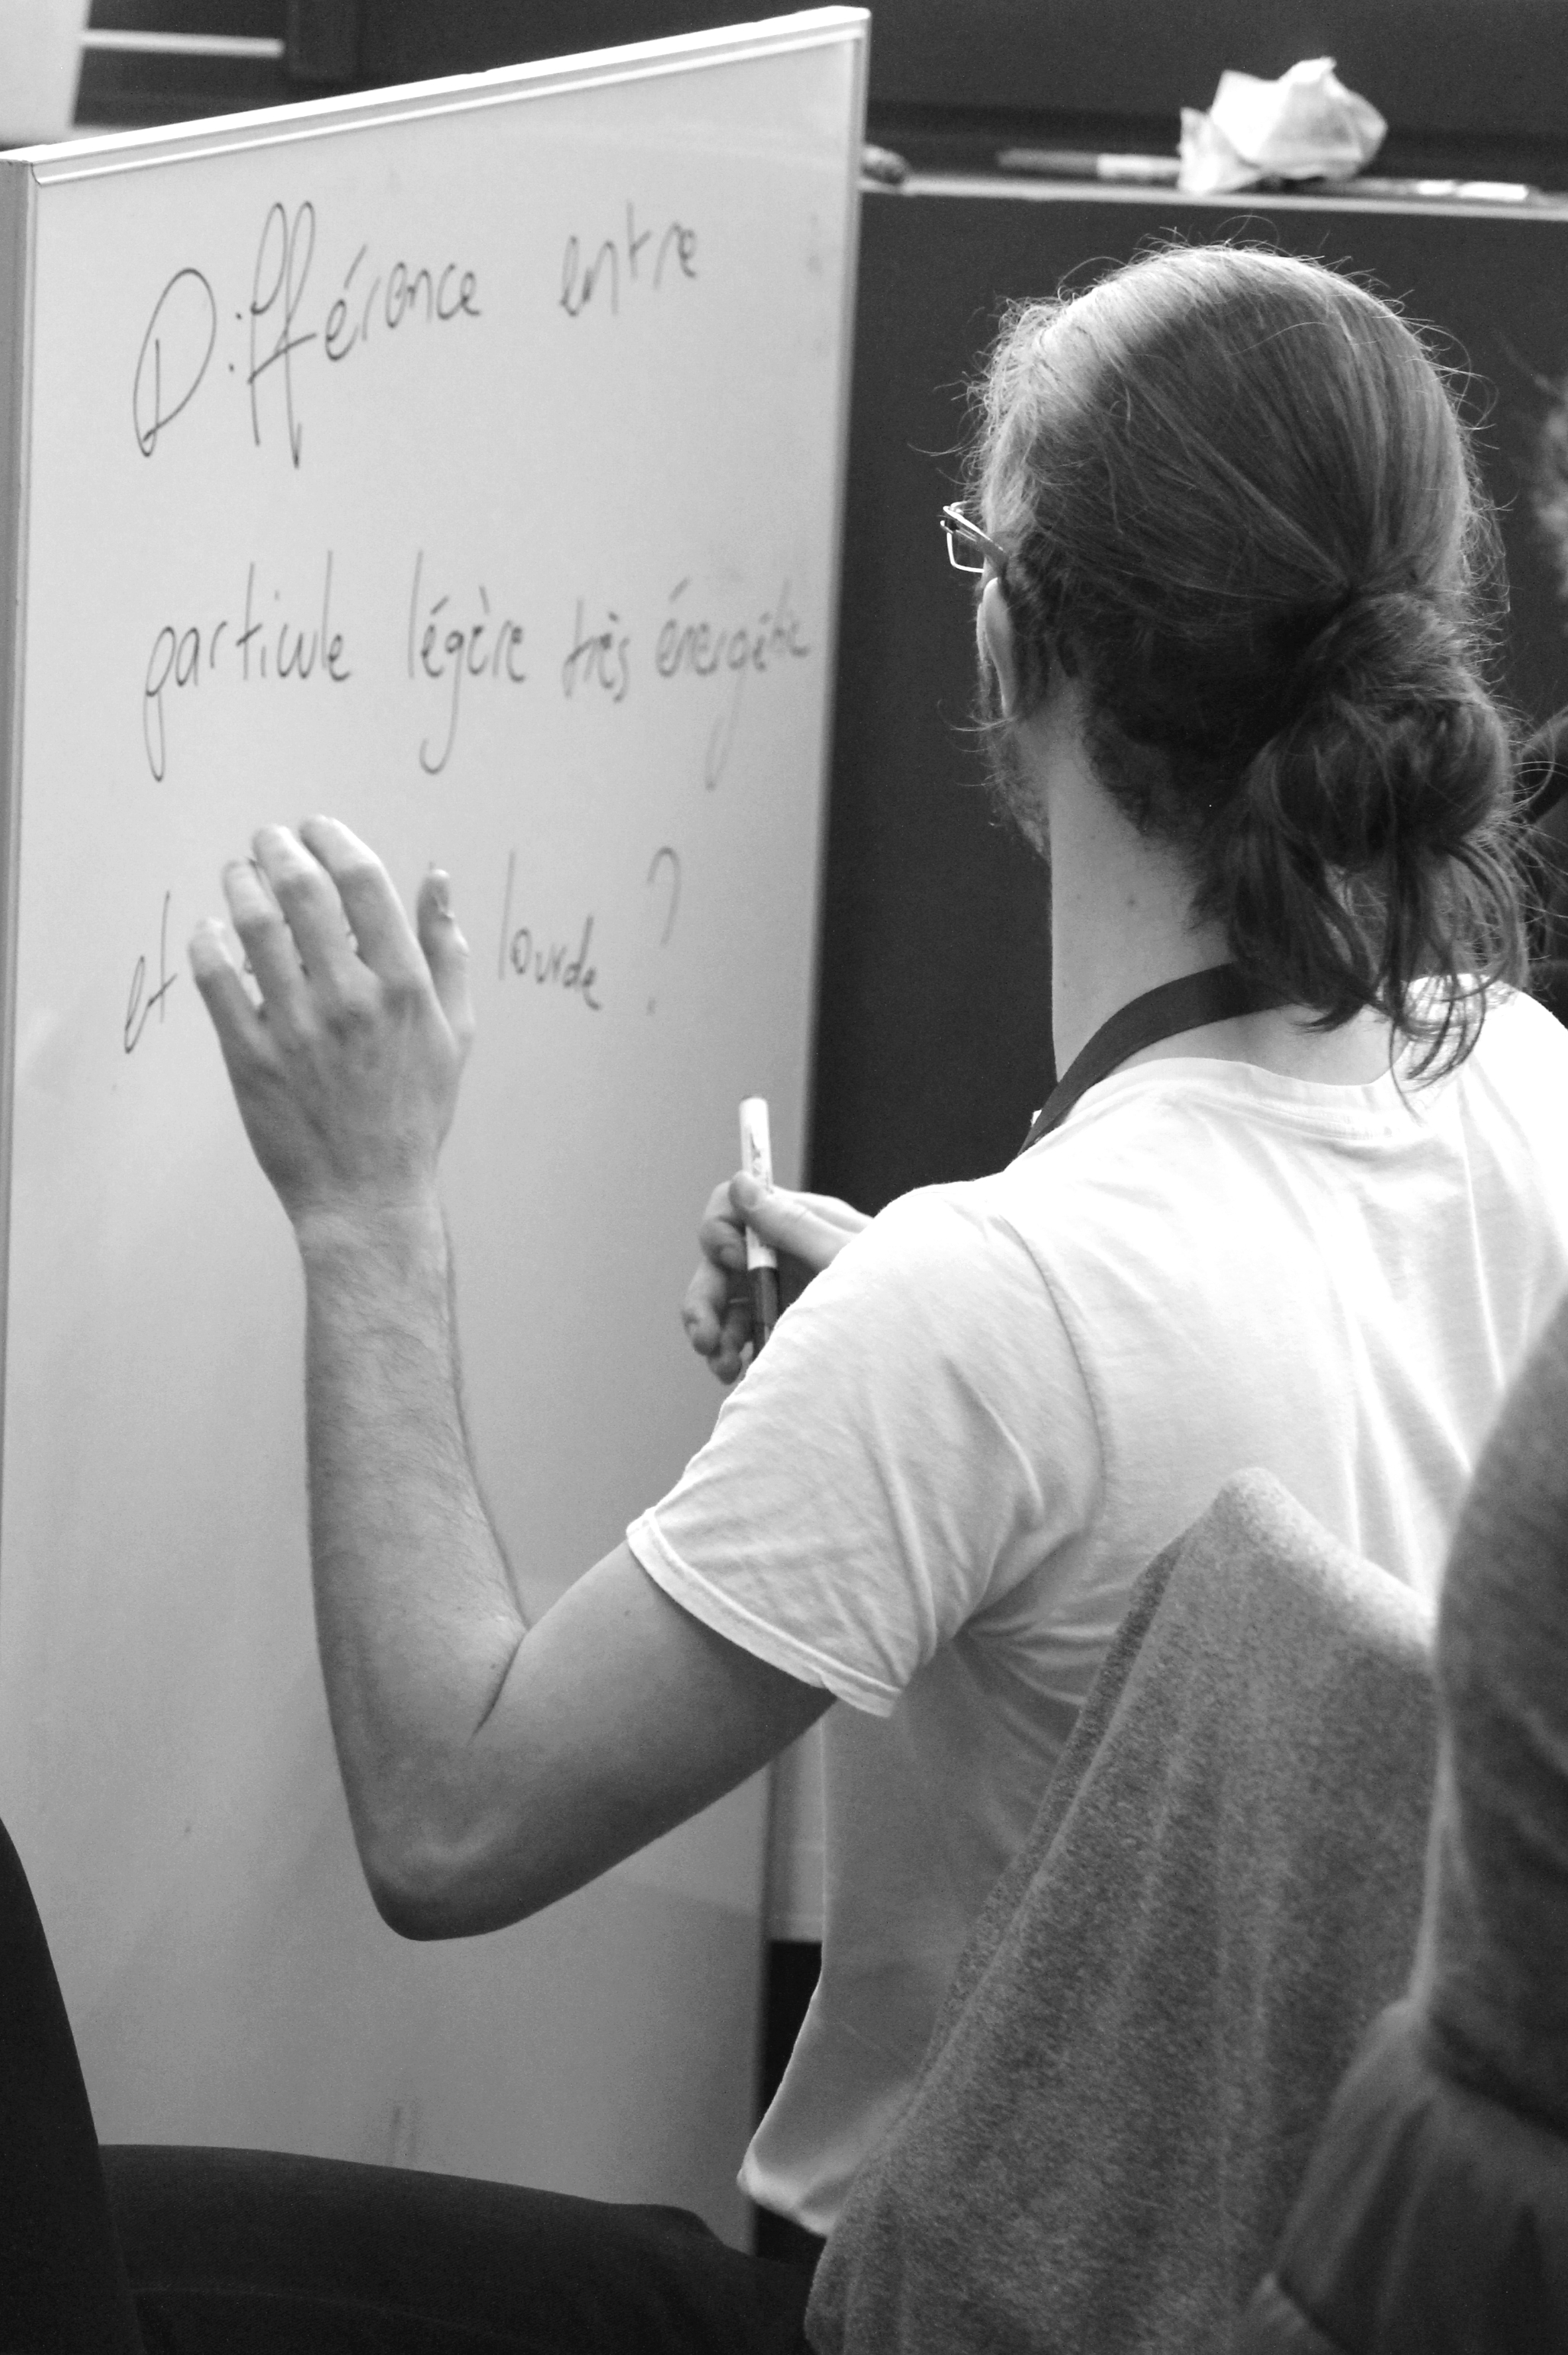 Différence entre
particule légère très énergétique
et lourde ?